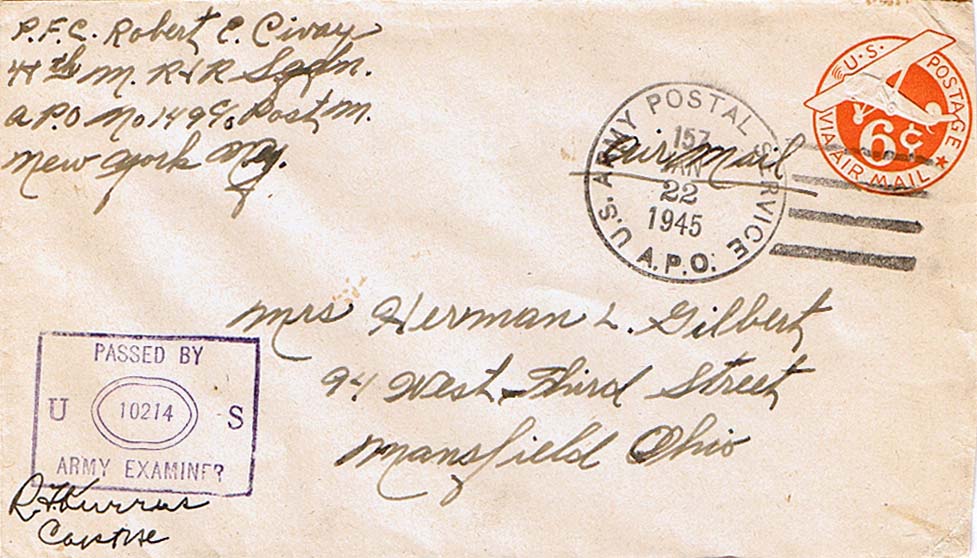 P.F.C. Robert E. Civay
4th M. R & R Sqdn.
A.P.O No 149 c/o Post M.
New York N.Y.
U.S. POSTAGE
6¢
VIA AIR MAIL
U.S. ARMY POSTAL SERVICE
A.P.O.
157
JAN
22
1945
Air Mail
Mrs Herman L. Gilbert
94 West Third Street
Mansfield Ohio
PASSED BY
U 10214 S
ARMY EXAMINER